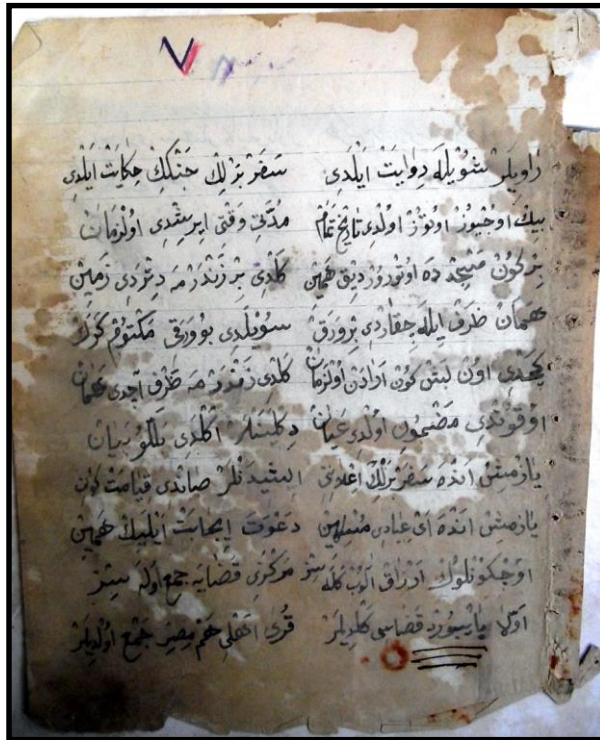 راويلر شويله روايت ايلدى سفر برلك جنككن حكايت ايلدى
بيك اوچيوز اوتوز اولدى تاريخ تمام مدتى وقتى ايرشدى اولزمان
بر كون مسجد ده اوتوروردق همين كلدى بر ژندرمه دتردى زمين
همان ظرف ايله چقاردى بر ورق سويلدى بو ورقى مكتوم كرك
كچدى اون بش كون ارادن اولزمان كلدى ژندرمه ظرف آچدى همان
اوقوندى مضمون اولدى عيان دكلينلر اكلدى بللو بيان
يازمش انده سفر برلك اعلانى اشيدنلر صاندى قيامت كونى
يازمش انده اى عبادى مسلمين دعوت اجابت ايليك همين
اوچ كونلوك ارزاق الوب كله سز مركزى قضايه جمع اوله سز
اولا بايبورد قضاسى كلديلر قرى اهلى هم مصر جمع اولديلر